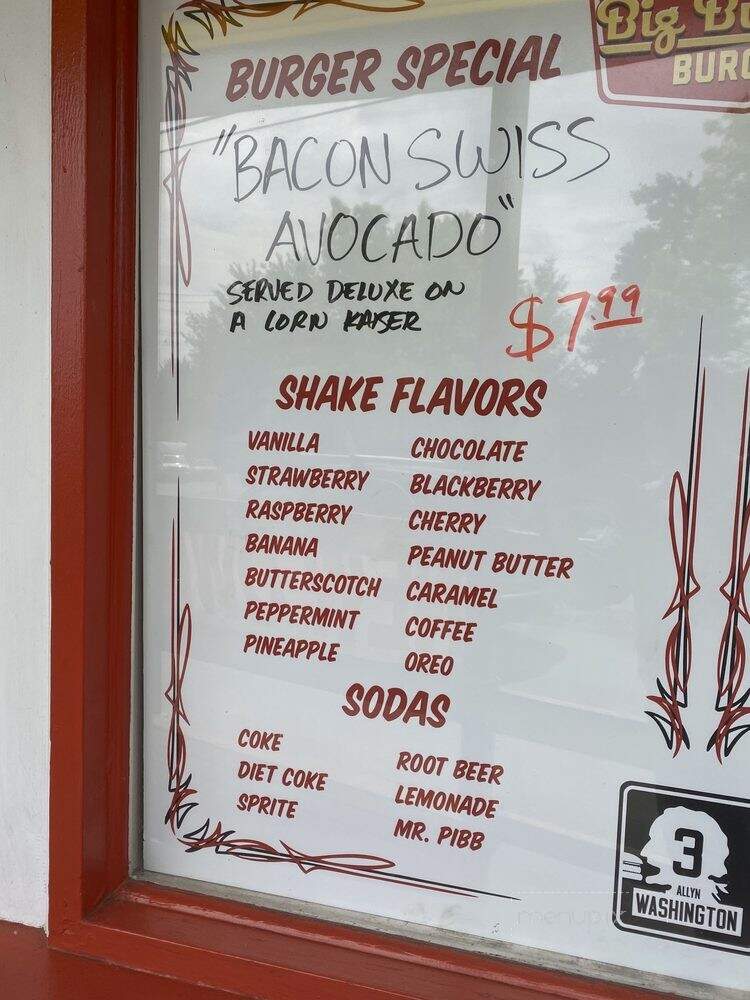 Big
BURG
BURGER SPECIAL
"BACON SWISS
AVOCADO"
SERVED DELUXE ON
A CORN KAISER
$7.99
SHAKE FLAVORS
VANILLA CHOCOLATE
STRAWBERRY BLACKBERRY
RASPBERRY CHERRY
BANANA PEANUT BUTTER
BUTTERSCOTCH CARAMEL
PEPPERMINT COFFEE
PINEAPPLE OREO
SODAS
COKE ROOT BEER
DIET COKE LEMONADE
SPRITE MR. PIBB
3
ALLYN
WASHINGTON